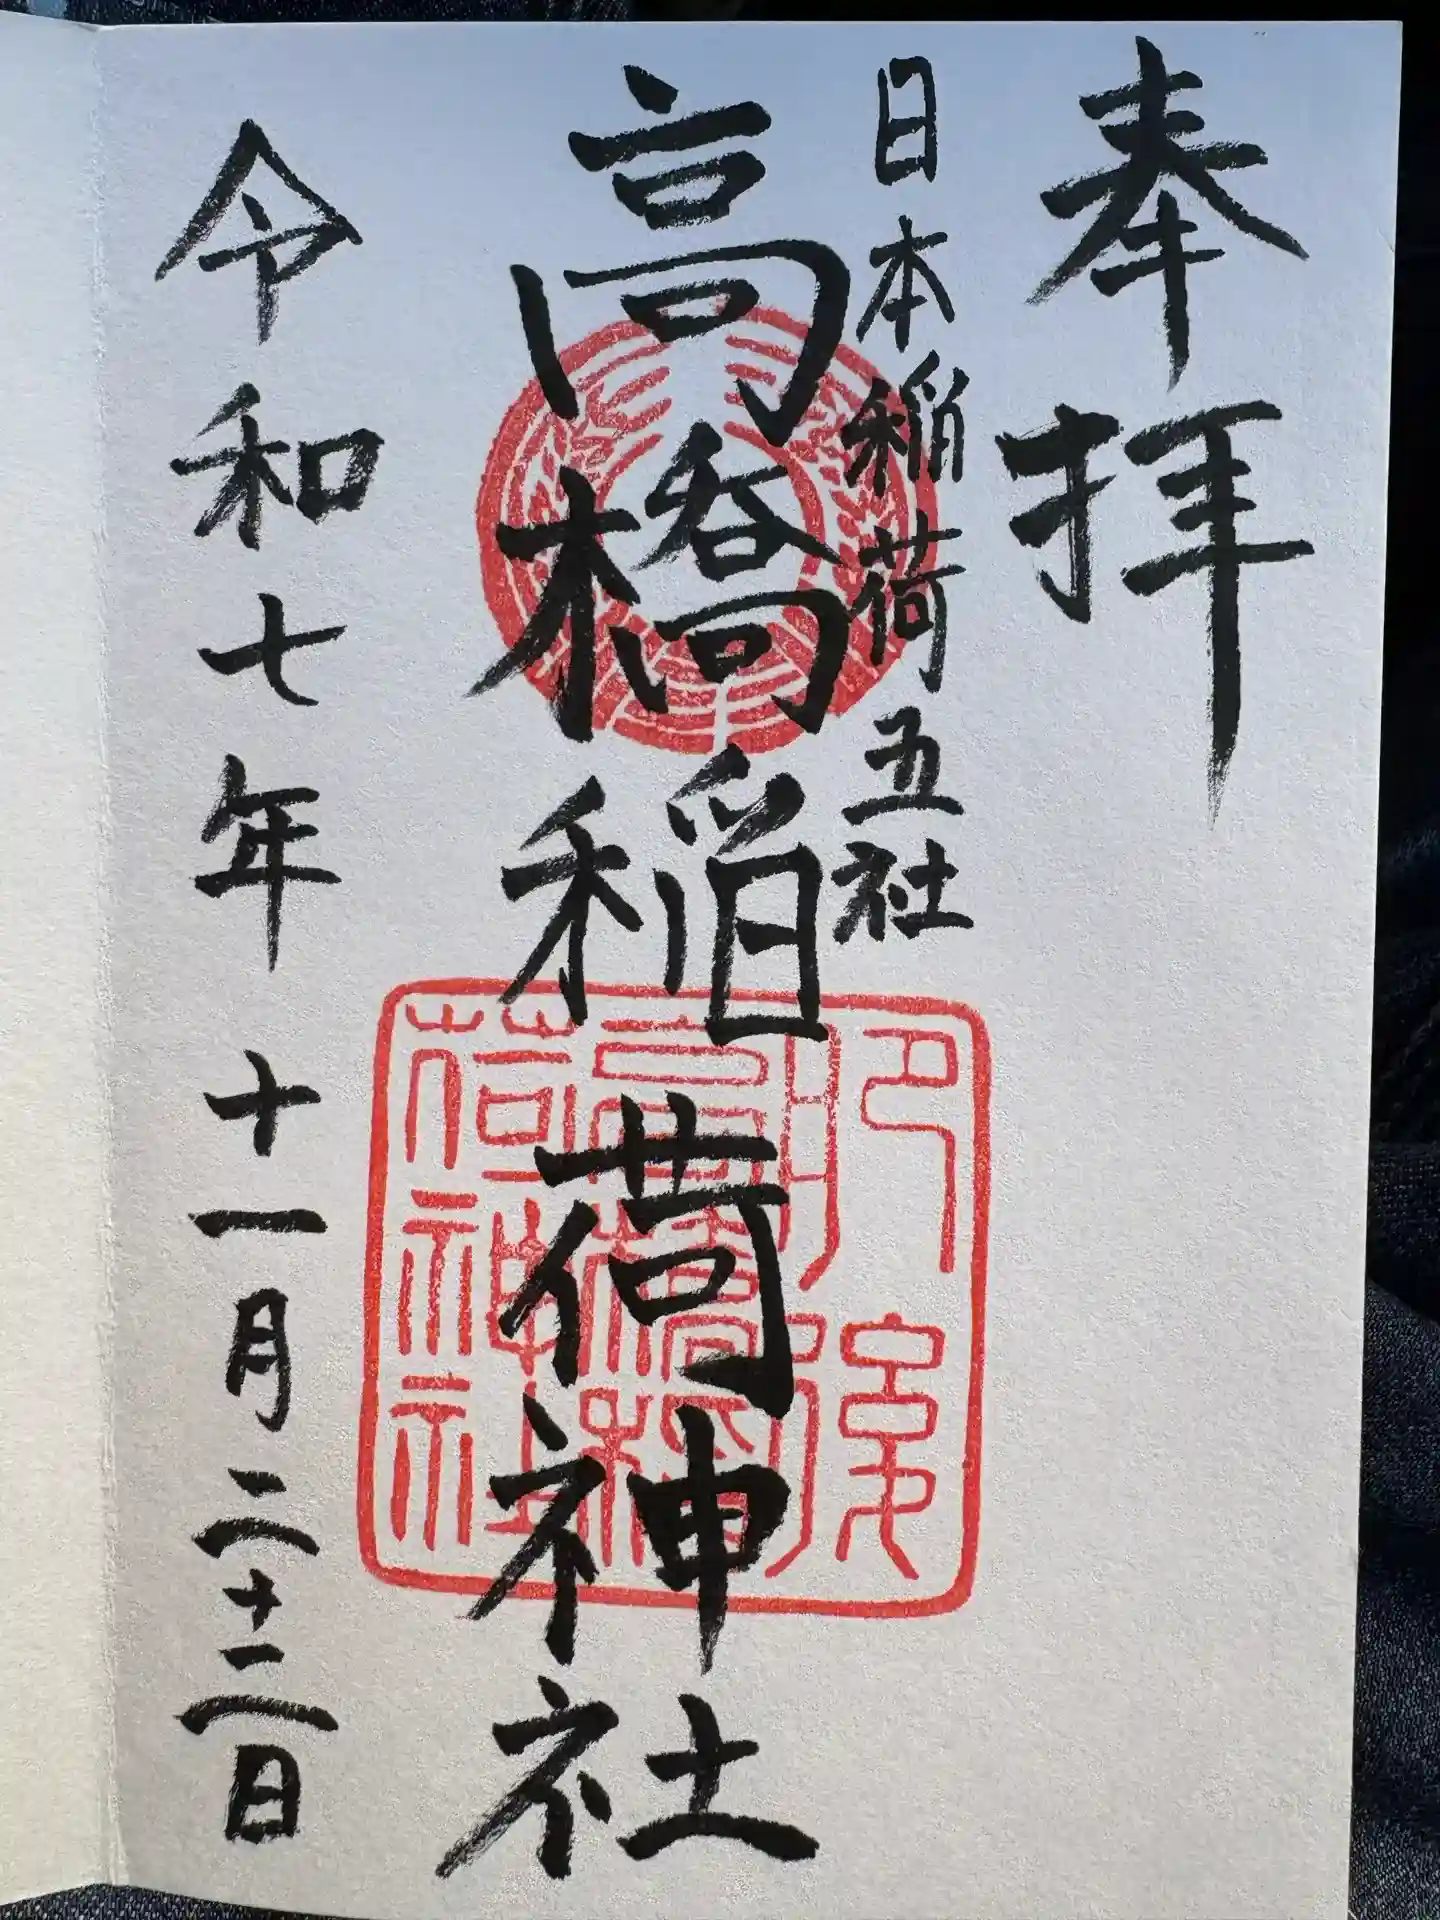 奉拝
日本稲荷五社
高橋稲荷神社
肥後
高橋稲
荷神社
令和七年十一月二十二日